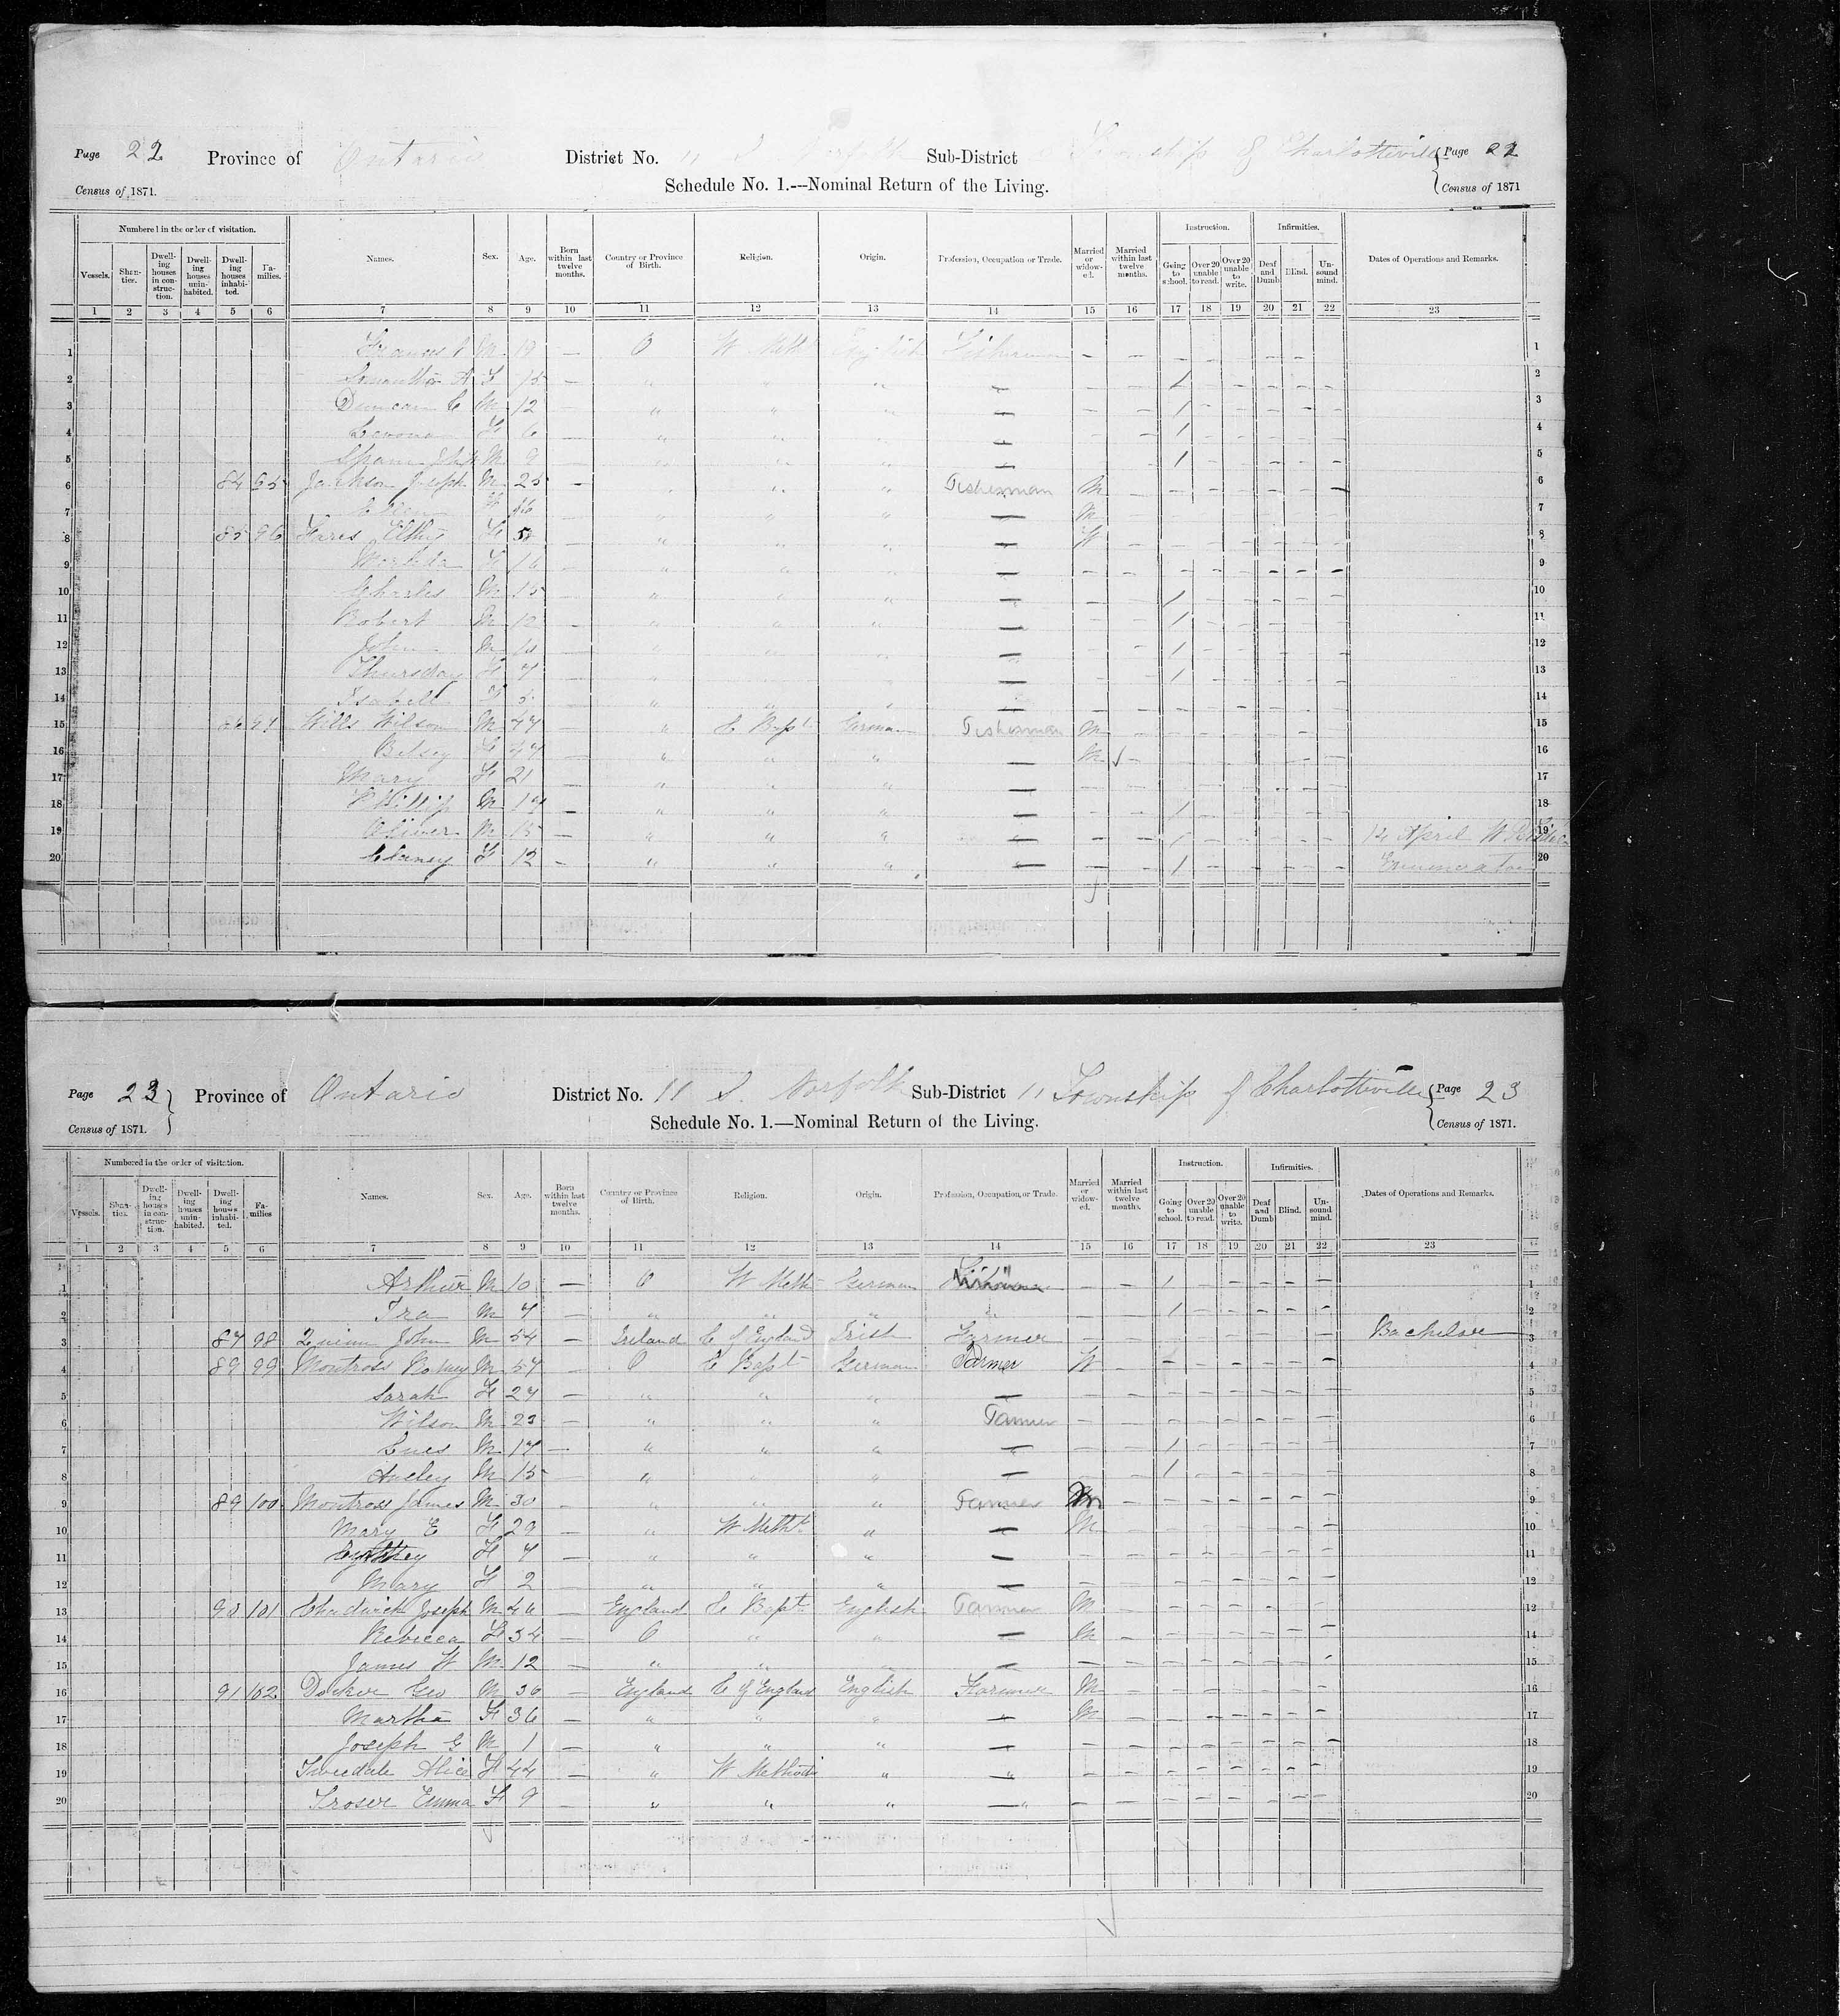 Page 22 Province of Ontario District No. 11 S. Norfolk Sub-District Township of Charlotteville Page 22
Census of 1871. Schedule No. 1.---Nominal Return of the Living. Census of 1871
Numbered in the order of visitation. Names. Sex. Age. Born within last twelve months. Country or Province of Birth. Religion. Origin. Profession, Occupation or Trade. Married or widowed. Married within last twelve months. Instruction. Infirmities. Dates of Operations and Remarks.
Vessels. Shanties. Dwelling houses in construction. Dwelling uninhabited. Dwelling houses inhabited. Families. Going to school. Over 20 unable to read. Over 20 unable to write. Deaf and Dumb. Blind. Unsound mind.
1 2 3 4 5 6 7 8 9 10 11 12 13 14 15 16 17 18 19 20 21 22 23
1 M 19 — O W Meth English Fisherman - - 1
2 Samantha A F 15 — " " " — 1 2
3 Duncan C M 12 — " " " — 1 3
4 F 6 — " " " — 1 4
5 M 9 " " " — 1 5
6 84 95 Jackson Joseph M 25 — " " " Fisherman M 6
7 Ellen F " " " — M 7
8 85 96 F " " " — W 8
9 F 16 " " " — 9
10 Charles M 15 " " " — 1 10
11 Robert M 12 " " " — 1 11
12 John M " " " — 1 12
13 Thursday F 7 " " " — 1 13
14 Isabell F 5 " " " — 14
15 86 97 Wills Wilson M 47 " C Bapt German Fisherman M 15
16 Betsey F 47 — " " " — M 16
17 Mary F 21 — " " " — 17
18 Phillip M 17 — " " " — 1 18
19 Oliver M 15 — " " " — 1 12 April 19
20 Clarney F 12 - " " " — 1 Enumerator 20
Page 23 Province of Ontario District No. 11 S. Norfolk Sub-District 11 Township of Charlotteville Page 23
Census of 1871. Schedule No. 1.—Nominal Return of the Living. Census of 1871.
Numbered in the order of visitation. Names. Sex. Age. Born within last twelve months. Country or Province of Birth. Religion. Origin. Profession, Occupation, or Trade. Married or widowed. Married within last twelve months. Instruction. Infirmities. Dates of Operations and Remarks.
Vessels. Shanties. Dwelling houses in construction. Dwelling uninhabited. Dwelling houses inhabited. Families Going to school. Over 20 unable to read. Over 20 unable to write. Deaf and Dumb Blind. Unsound mind.
1 2 3 4 5 6 7 8 9 10 11 12 13 14 15 16 17 18 19 20 21 22 23
1 Arthur M 10 — O W Meth German - - 1 1
2 Ira M 7 — " " " " 1 2
3 87 98 Quinn John M 54 — Ireland C of England Irish Farmer Bachelor 3
4 89 99 Montross Rodney M 57 — O C Bapt German Farmer W 4
5 Sarah F 27 — " " " — 5
6 Wilson M 23 — " " " Farmer 6
7 M 17 — " " " — 1 7
8 M 15 — " " " — 1 8
9 89 100 Montross James M 30 — " " " Farmer M 9
10 Mary E F 29 — " W Meth " — M 10
11 F 7 — " " " — 11
12 Mary F 2 — " " " — 12
13 90 101 Chadwick Joseph M 46 — England C Bapt English Farmer M 13
14 Rebecca F 34 — O " " — M 14
15 James W M 12 — " " " — 15
16 91 102 Geo M 36 — England C of England English Farmer M 16
17 Martha F 36 — " " " — M 17
18 Joseph G M 1 — " " " — 18
19 Tweedale Alice F 44 — " W Methodi " — 19
20 Emma F 9 — " " " — 20